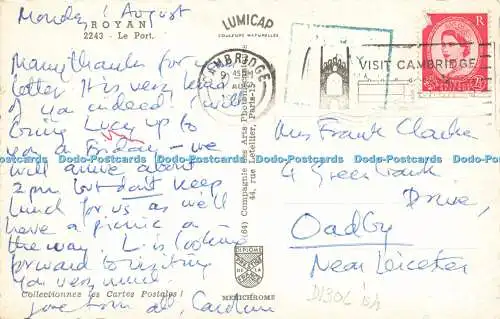 Monday 1 August
ROYAN
2243 - Le Port.
Many thanks for your
letter. It is very kind
of you indeed. I will
bring Lucy up to
you on Friday - we
will arrive about
2pm but don't keep
lunch for us as we'll
have a picnic on
the way. L. is looking
forward to visiting
you very much.
Love from all, Caroline
Collectionnez les Cartes Postales !
LUMICAP
COULEURS NATURELLES
(64) Compagnie des Arts Photomécaniques
44, rue Letellier, Paris-15
DIPLOME
MERICHROME
CAMBRIDGE
VISIT CAMBRIDGE
Mrs Frank Clarke
4 Green Bank
Drive,
Oadby
Near Leicester
Dodo-Postcards Dodo-Postcards Dodo-Postcards Dodo-Postcards Dodo-Postcards Dodo-Postcards